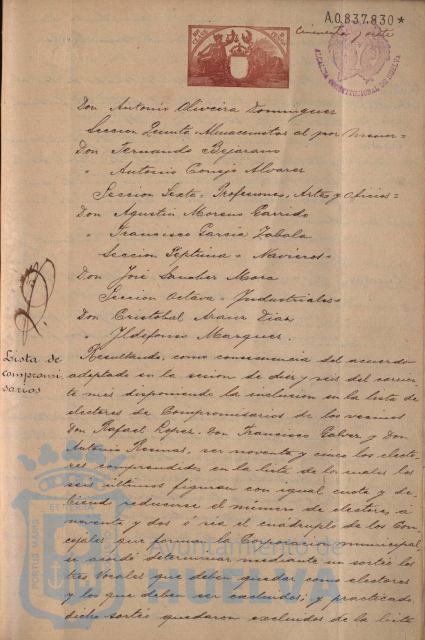 A.0.837.830*
cincuenta y siete
ALCALDIA CONSTITUCIONAL DE HUELVA
Don Antonio Oliveira Dominguez
Seccion Quinta Almacenistas al por menor=
Don Fernando Bejarano
" Antonio Conejo Alvarez
Seccion Sexta = Profesiones, Artes y Oficios=
Don Agustin Moreno Garrido
" Francisco Garcia Zabala
Seccion Septima = Navieros=
Don José Sanchez Mora
Seccion Octava = Industriales=
Don Cristobal Arauz Diaz
" Ildefonso Marquez.
Lista de
compromi
sarios
Resultando, como consecuencia del acuerdo
adoptado en la sesion de diez y seis del corrien
te mes disponiendo la inclusion en la lista de
electores de Compromisarios de los vecinos
Don Rafael Lopez, Don Francisco Galvez y Don
Antonio ser noventa y cinco los electo
res comprendidos en la lista de los cuales los
seis ultimos figuran con igual cuota y de
biendo reducirse el número de electores á
noventa y dos ó sea el cuádruplo de los Con
cejales que forman la Corporacion municipal,
se acordó determinar mediante un sorteo los
tres Vocales que deben quedar como electores
y los que deben ser excluidos; y practicado
dicho sorteo quedaron excluidos de la lista
PORTUS MARIS ET TERRÆ CUSTODIA
Ayuntamiento de
HUELVA